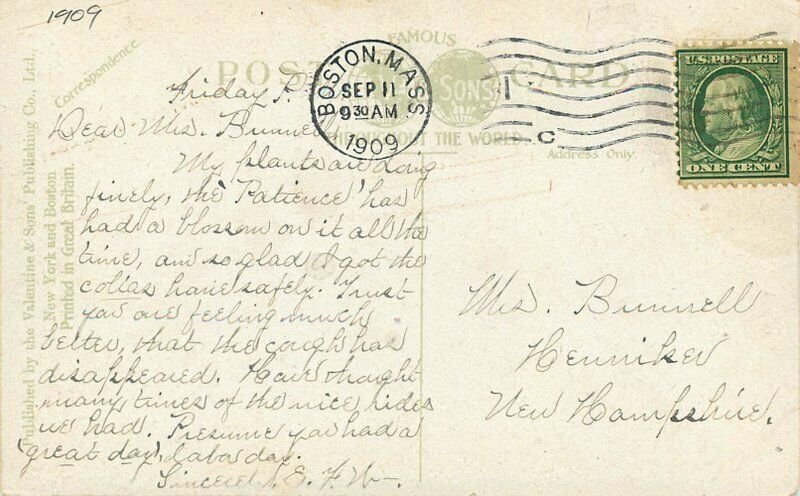 1909
FAMOUS
POST CARD
SONS
THROUGHOUT THE WORLD
Correspondence.
Address Only.
BOSTON, MASS.
SEP 11
9 30 AM
1909
C
U.S. POSTAGE
ONE CENT
Published by the Valentine & Sons' Publishing Co., Ltd.,
New York and Boston
Printed in Great Britain.
Friday P.
Dear Mrs. Bunnell
My plants are doing
finely, the 'Patience' has
had a blossom on it all the
time, and so glad I got the
collas home safely. Trust
you are feeling much
better, that the cough has
disappeared. Have thought
many times of the nice rides
we had. Presume you had a
'great day', labor day.
Sincerel E. F. W-
Mrs. Bunnell
Henniker
New Hampshire.